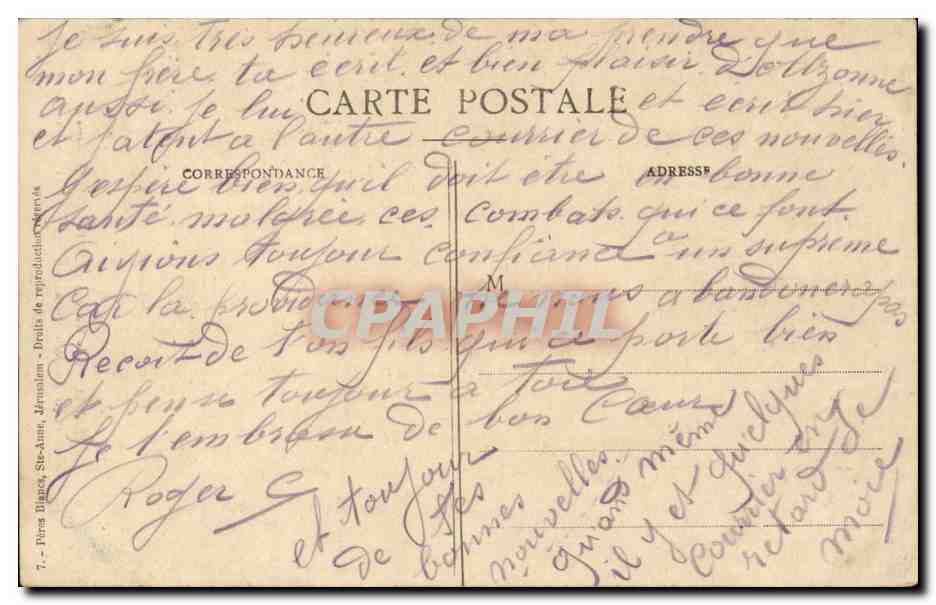 je suis très heureux de ma prendre que
mon frère ta écrit et bien plaisir d'
aussi je lui et écrit hier
CARTE POSTALE
et j'atent a l'autre courrier de ces nouvelles.
CORRESPONDANCE
ADRESSE
J'espère bien qu'il doit être en bonne
santé malgrée ces combats qui ce font.
Ayions toujour confiance a un supreme
M
Car la providence ne nous abandonera pas
CPAPHIL
Recoit de ton fils qui ce porte bien
et pense toujour a toie
Je t'embrasse de bon Cœur
Roger C
et toujour
de tes
bonnes
nouvelles.
quans même
il y et quelques
courrier en
retard de
moie
7. - Pères Blancs, Ste-Anne, Jérusalem - Droits de reproduction réservés